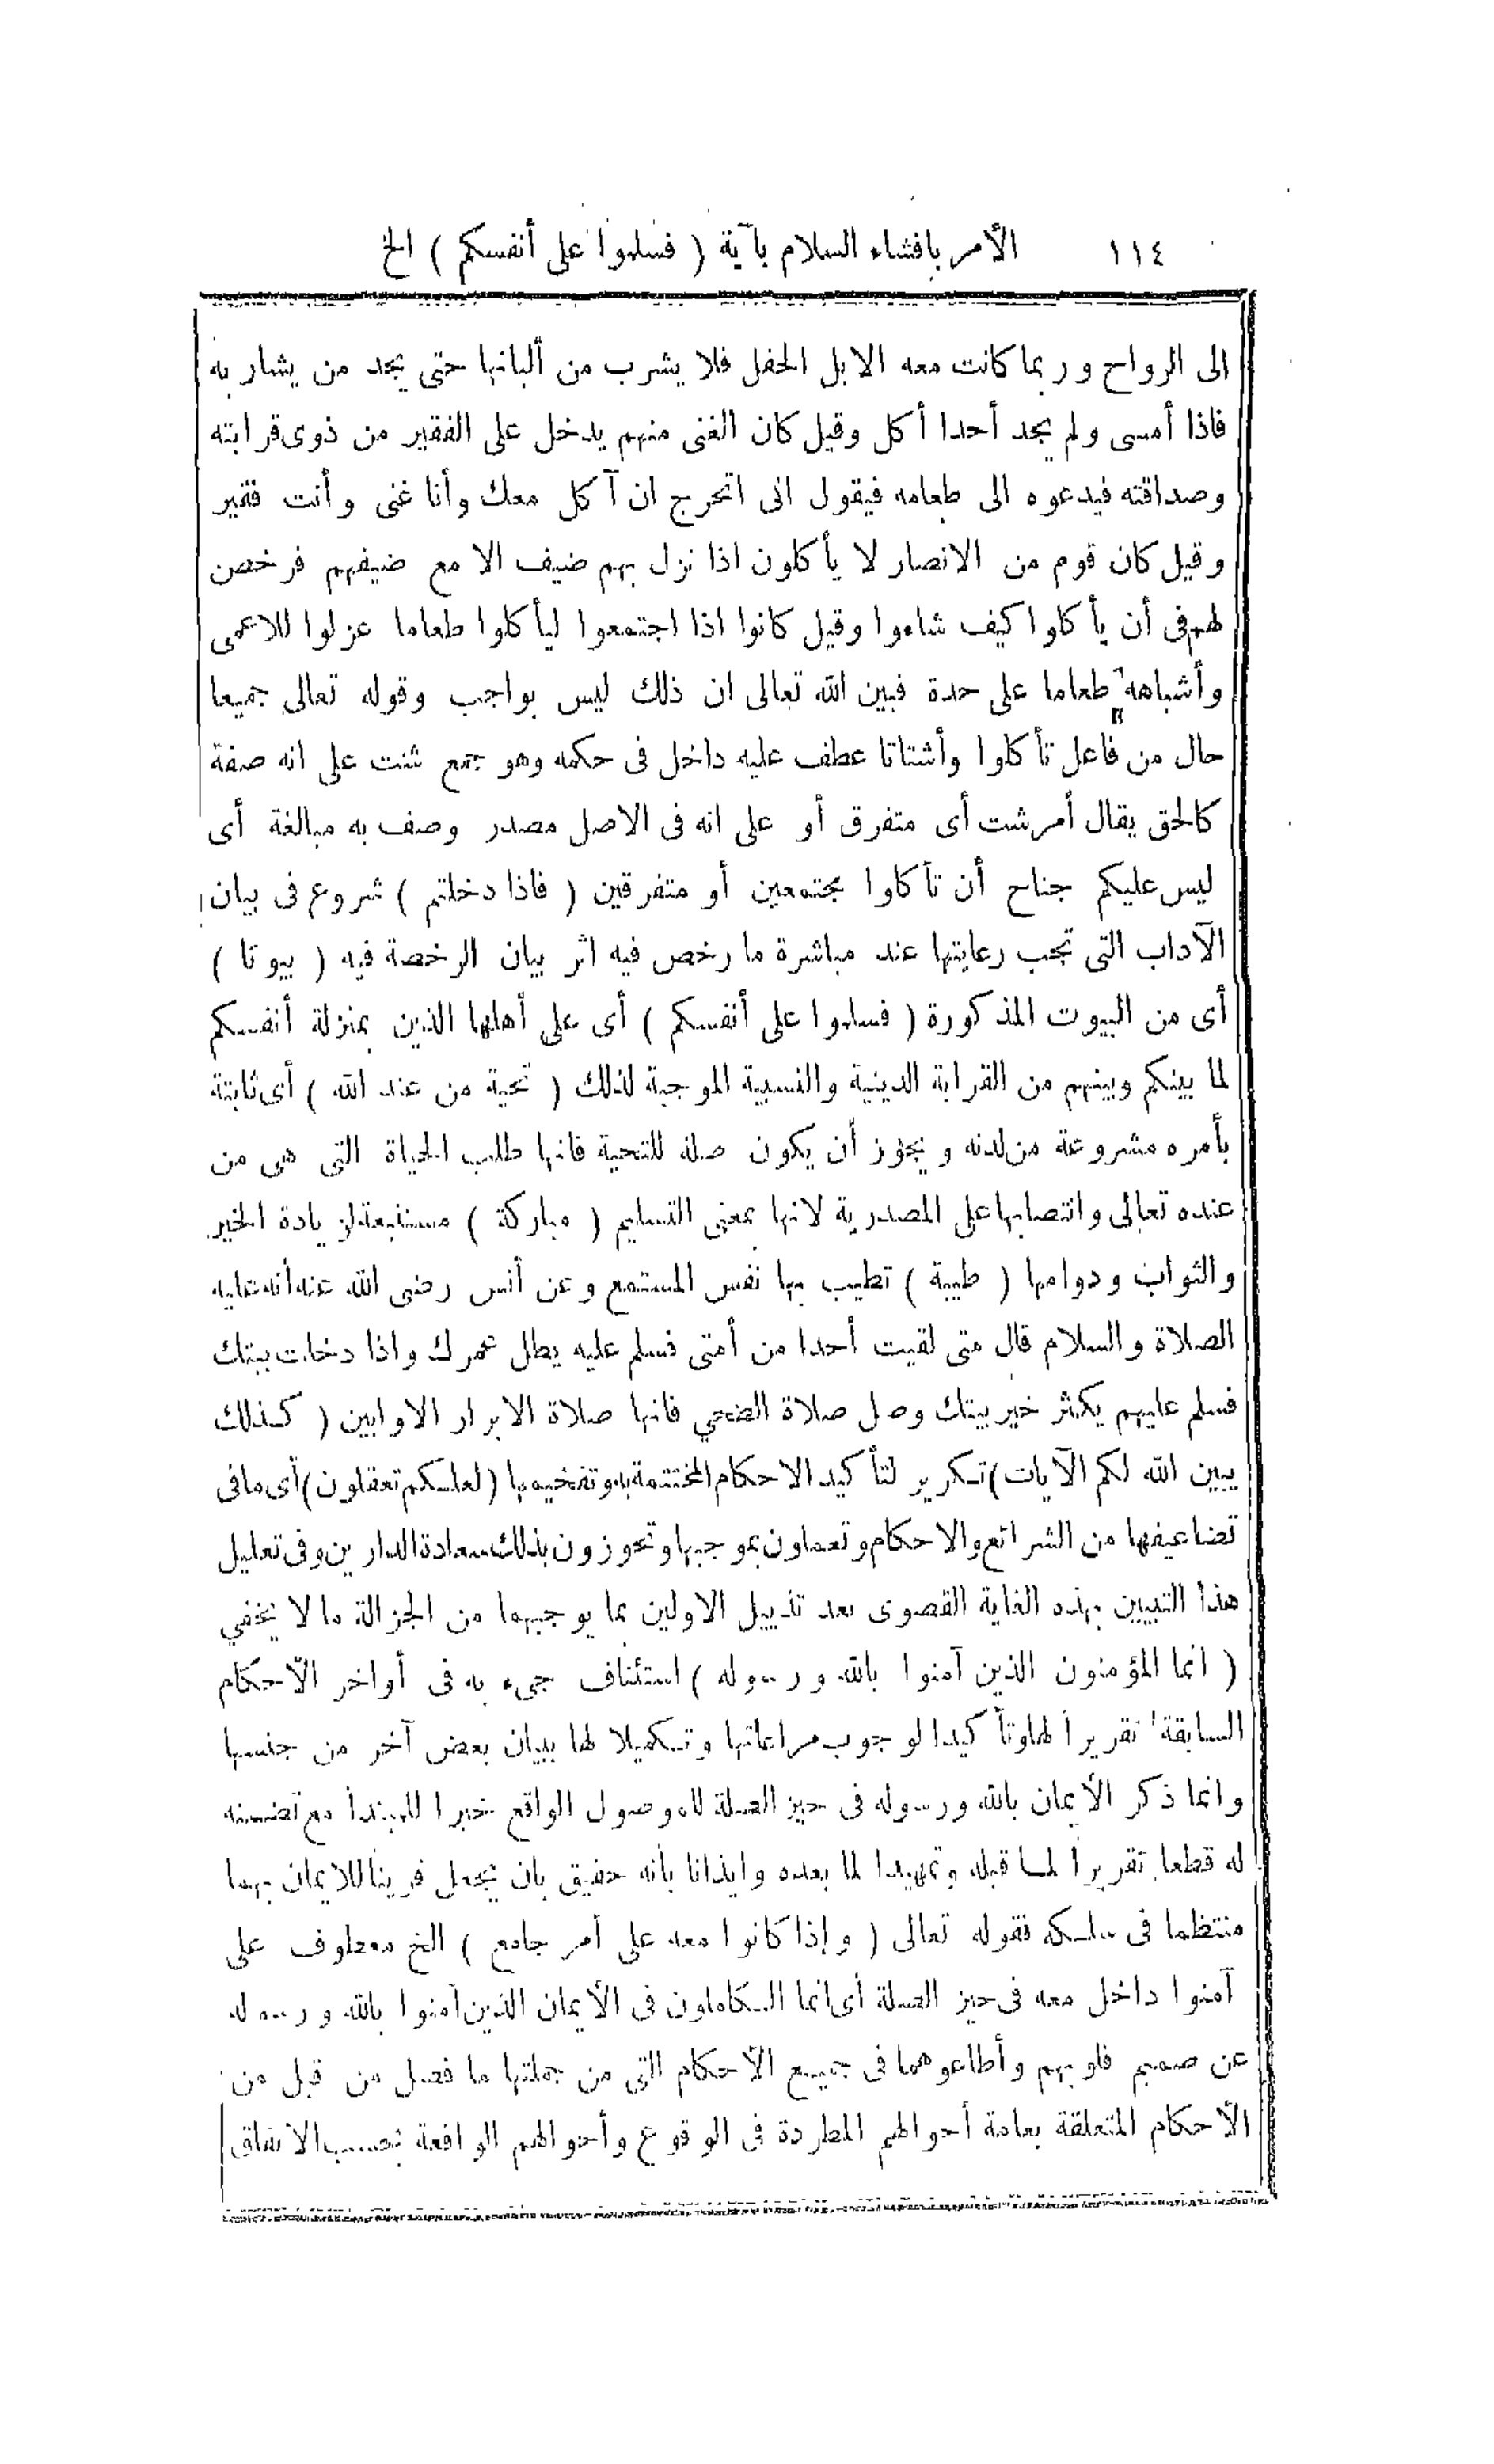 ١١٤ الأمر بافشاء السلام بآية ( فسلموا على أنفسكم ) الخ
الى الرواح وربما كانت معه الابل الحفل فلا يشرب من ألبانها حتى يجد من يشاربه
فاذا أمسى ولم يجد أحدا أكل وقيل كان الغنى منهم يدخل على الفقير من ذوى قرابته
وصداقته فيدعوه الى طعامه فيقول انى اتحرج ان آكل معك وأنا غنى وأنت فقير
وقيل كان قوم من الانصار لا يأكلون اذا نزل بهم ضيف الا مع ضيفهم فرخص
لهم فى أن يأكلوا كيف شاءوا وقيل كانوا اذا اجتمعوا ليأكلوا طعاما عزلوا للاعمى
وأشباهه طعاما على حدة فبين الله تعالى ان ذلك ليس بواجب وقوله تعالى جميعا
حال من فاعل تأكلوا وأشتاتا عطف عليه داخل فى حكمه وهو جمع شت على انه صفة
كالحق يقال أمر شت أى متفرق أو على انه فى الاصل مصدر وصف به مبالغة أى
ليس عليكم جناح أن تأكلوا مجتمعين أو متفرقين ( فاذا دخلتم ) شروع فى بيان
الآداب التى تجب رعايتها عند مباشرة ما رخص فيه اثر بيان الرخصة فيه ( بيوتا )
أى من البيوت المذكورة ( فسلموا على أنفسكم ) أى على أهلها الذين بمنزلة أنفسكم
لما بينكم وبينهم من القرابة الدينية والنسبية الموجبة لذلك ( تحية من عند الله ) أى ثابتة
بأمره مشروعة من لدنه ويجوز أن يكون صلة للتحية فانها طلب الحياة التى هى من
عنده تعالى وانتصابها على المصدرية لانها بمعنى التسليم ( مباركة ) مستتبعة لزيادة الخير
والثواب ودوامها ( طيبة ) تطيب بها نفس المستمع وعن أنس رضى الله عنه أنه عليه
الصلاة والسلام قال متى لقيت أحدا من أمتى فسلم عليه يطل عمرك واذا دخلت بيتك
فسلم عليهم يكثر خير بيتك وصل صلاة الضحي فانها صلاة الابرار الاوابين ( كذلك
يبين الله لكم الآيات ) تكرير لتأكيد الاحكام المختتمة به وتفخيمها ( لعلكم تعقلون ) أى ما فى
تضاعيفها من الشرائع والاحكام وتعملون بموجبها وتحوزون بذلك سعادة الدارين وفى تعليل
هذا التبيين بهذه الغاية القصوى بعد تذييل الاولين بما يوجبهما من الجزالة ما لا يخفي
( انما المؤمنون الذين آمنوا بالله ورسوله ) استئناف جىء به فى أواخر الأحكام
السابقة تقريراً لها وتأكيدا لوجوب مراعاتها وتكميلا لها ببيان بعض آخر من جنسها
وانما ذكر الأيمان بالله ورسوله فى حيز الصلة للموصول الواقع خبرا للمبتدأ مع تضمنه
له قطعا تقريراً لما قبله وتمهيدا لما بعده وايذانا بأنه حقيق بان يجعل قرينا للايمان بهما
منتظما فى سلكه فقوله تعالى ( وإذا كانوا معه على أمر جامع ) الخ معطوف على
آمنوا داخل معه فى حيز الصلة أى انما الكاملون فى الأيمان الذين آمنوا بالله ورسوله
عن صميم قلوبهم وأطاعوهما فى جميع الأحكام التى من جملتها ما فصل من قبل من
الأحكام المتعلقة بعامة أحوالهم المطردة فى الوقوع وأحوالهم الواقعة بحسب الاتفاق